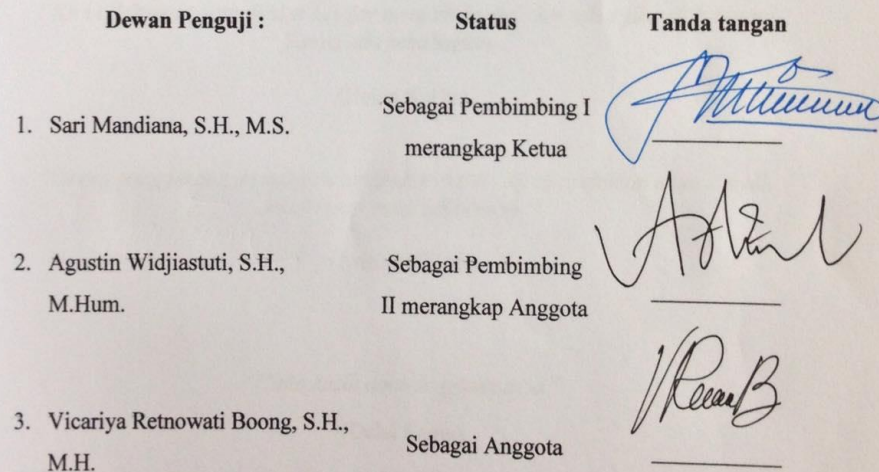 Dewan Penguji : Status Tanda tangan
1. Sari Mandiana, S.H., M.S. Sebagai Pembimbing I
merangkap Ketua
2. Agustin Widjiastuti, S.H., Sebagai Pembimbing
M.Hum. II merangkap Anggota
3. Vicariya Retnowati Boong, S.H., Sebagai Anggota
M.H.